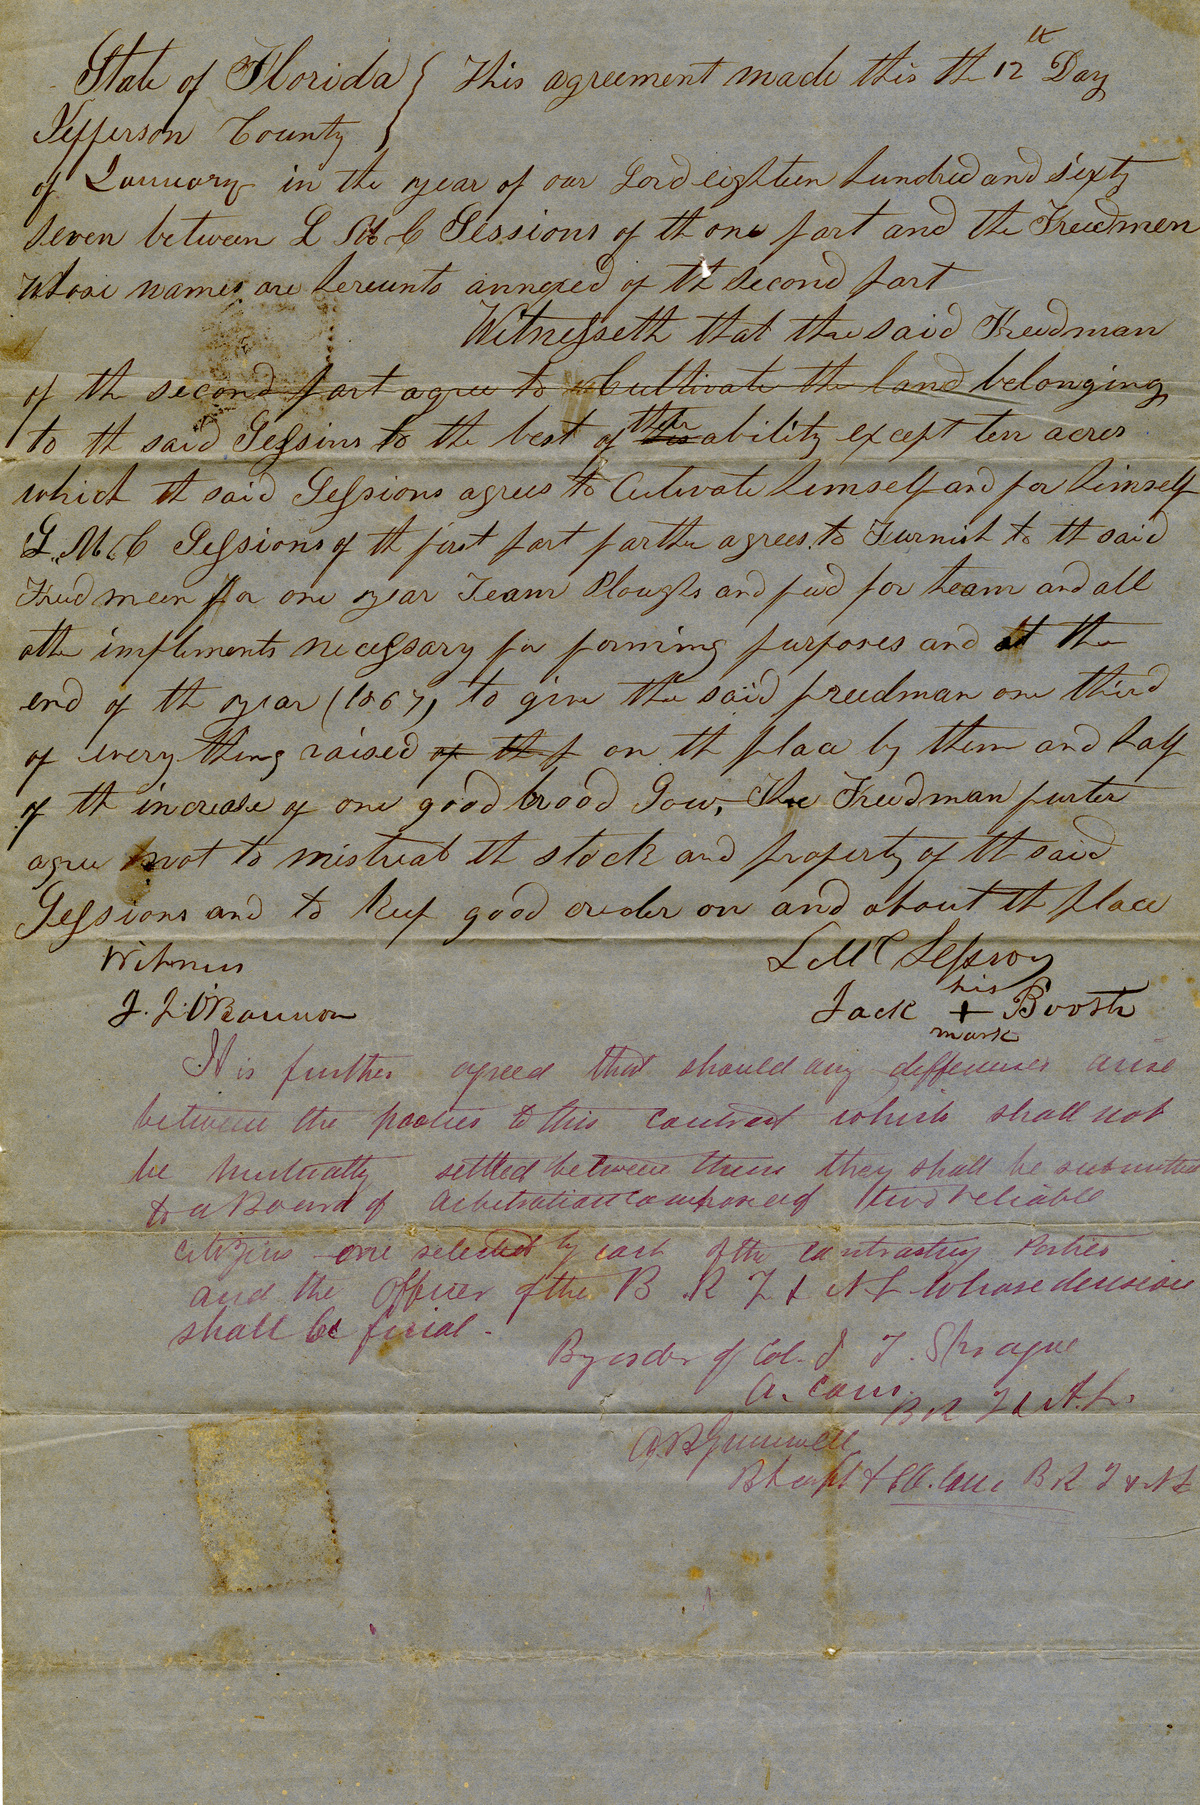 State of Florida } This agreement made this th 12th Day
Jefferson County
of January in the year of our Lord eighteen hundred and sixty
seven between L M C Sessions of th one part and the Freedmen
whose names are hereunto annexed of th second part
Witnesseth that the said Freedman
of th second part agree to Cultivate the land belonging
to th said Sessins to the best of their his ability except ten acres
which th said Sessions agrees to Cutivate himself and for himself
L. M. C Sessions of th first part farther agrees to Furnish to th said
Freed meen for one year Team Ploughs and feed for team and all
othe implements necessary for farming purposes and at the
end of th year (1867) to give the said freedman one third
of every thing raised of th f on th place by them and half
of th increase of one good brood Sow, The Freedman furter
agree not to mistreat th stock and property of th said
Sessions and to keep good oreder on and about th place
Witness L M C Sessions
his
Jack + Booth
mark
It is further agreed that should any differences arise
between the parties to this contract which shall not
be mutually settled between them they shall be submitted
to a Board of arbitration composed of two reliable
citizens one selected by each of the contracting Parties
and the Officer of the B R F & A L whose decision
shall be final.
By order of Col. J T. Sprague
A. Com. B R F & A. L.
A B Grumwell
Bt Capt & A. Com B R F & A L